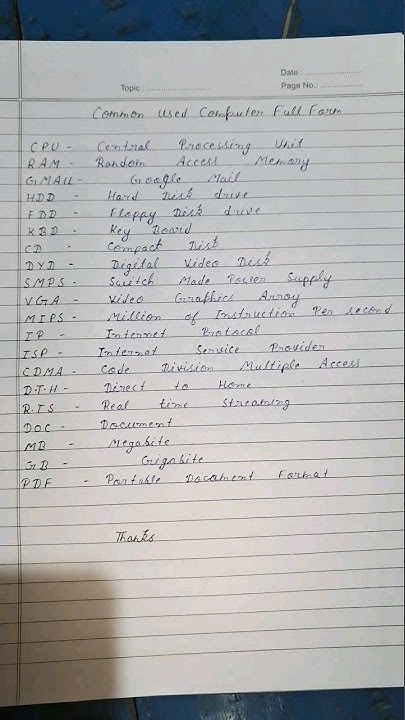 Date : ........................
Topic : ........................ Page No.: ..................
Common Used Computer Full Form
CPU - Central Processing Unit
RAM - Random Access Memory
GMAIL - Google Mail
HDD - Hard Disk drive
FDD - Floppy Disk drive
KBD - Key Board
CD - Compact Disk
DVD - Digital Video Disk
SMPS - Switch Made Power Supply
VGA - Video Graphics Array
MIPS - Million of Instruction Per second
IP - Internet Protocol
ISP - Internet Service Provider
CDMA - Code Division Multiple Access
D.T.H - Direct to Home
R.T.S - Real time Streaming
DOC - Document
MB - Megabite
GB - Gigabite
PDF - Portable Document Format
Thanks